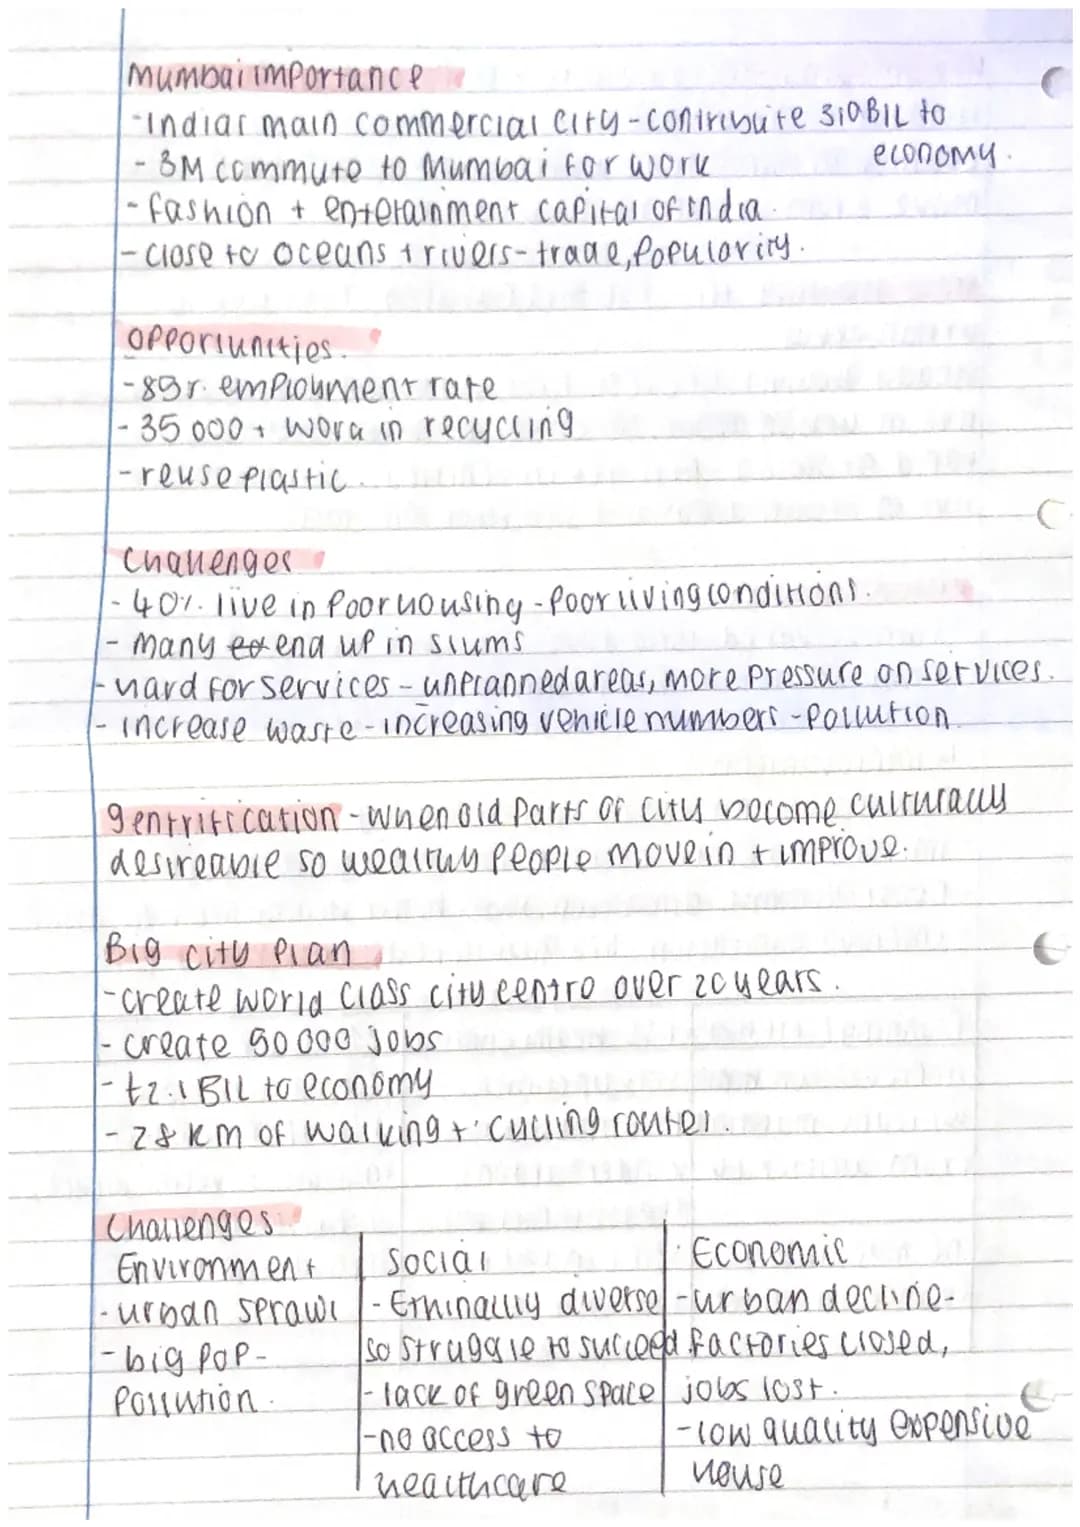 Mumbai importance
-Indias main commercial city-contribute 310BIL to
economy.
- 3M commute to Mumbai for work
- fashion + entetainment capital of India.
- close to oceans + rivers-trade, popularity.
opportunities.
-89%. employment rate
- 35 000 + work in recycling
- reuse plastic.
Challenges
- 40%. live in poor housing - poor living conditions.
- many end up in slums
- hard for services - unplanned areas, more pressure on services.
- increase waste-increasing vehicle numbers -pollution.
gentrification - when old parts of city become culturally
desireable so wealthy people move in + improve.
Big city plan
-create world class city centre over 20 years.
- create 50 000 jobs
- £2.1 BIL to economy
- 28 KM of walking + cycling routes.
Challenges
Environment
- urban sprawl
- big pop-
pollution.
Social
- Ethinally diverse
so struggle to succeed
- lack of green space
-no access to
healthcare
Economic
-urban decline-
factories closed,
jobs lost.
-low quality expensive
house